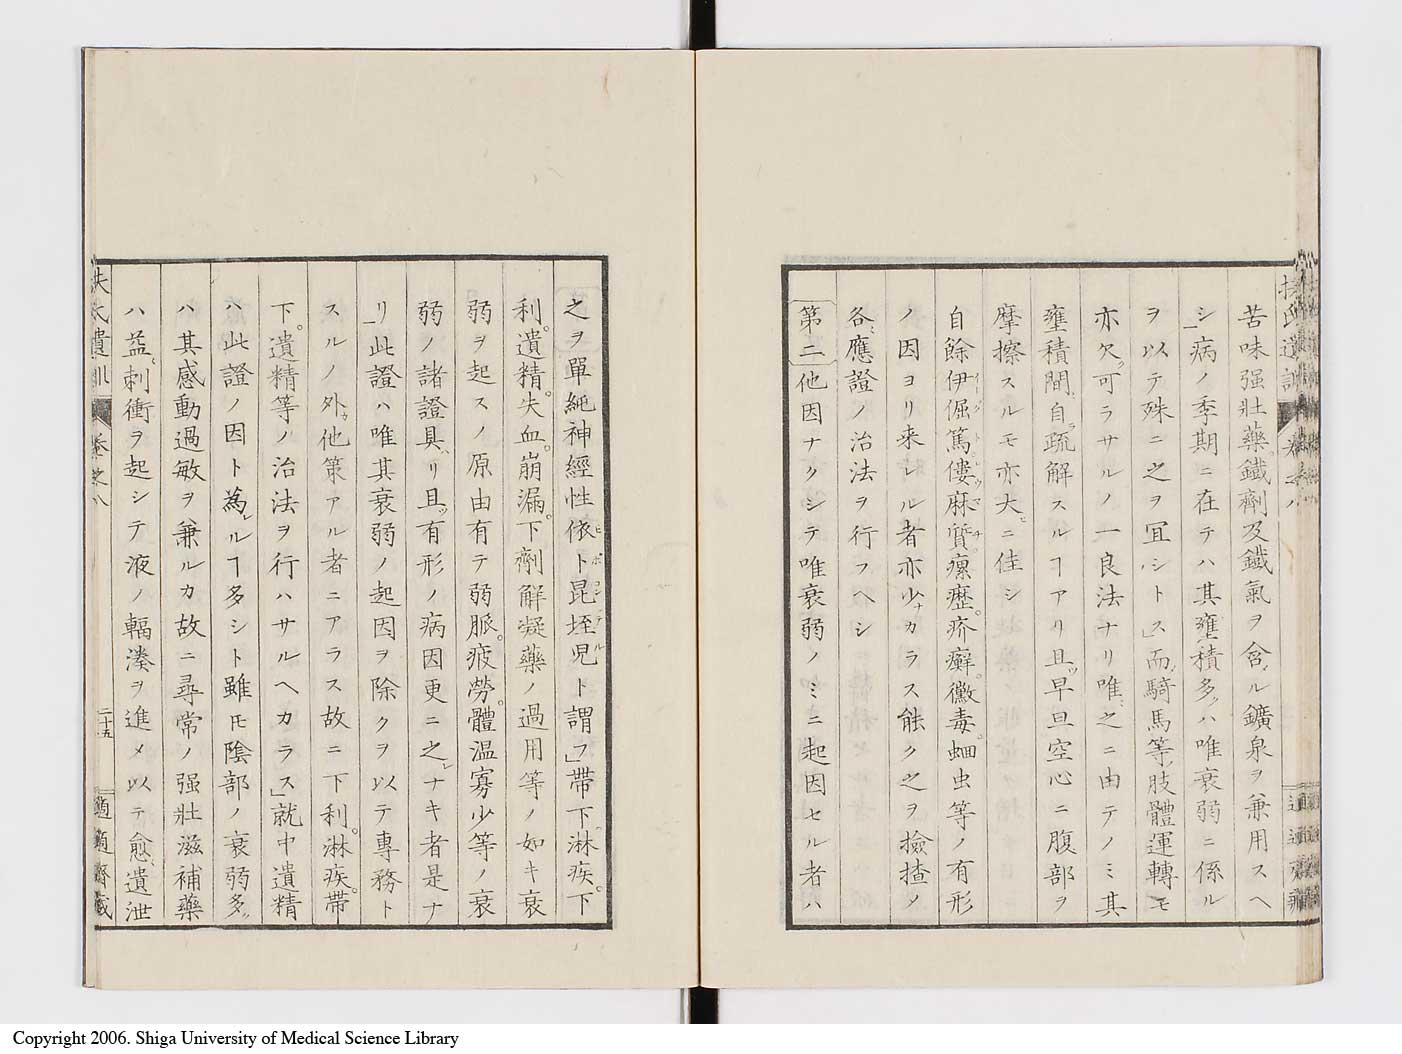 苦味强壯藥鐵劑及鐵氣ヲ含ル鑛泉ヲ兼用スヘ
シ」病ノ季期ニ在テハ其壅積多ハ唯衰弱ニ係ル
ヲ以テ殊ニ之ヲ冝シトス」而騎馬等肢體運轉モ
亦欠可ラサルノ一良法ナリ唯之ニ由テノミ其
壅積間自疏解スルヿアリ且早旦空心ニ腹部ヲ
摩擦スルモ亦大ニ佳シ
自餘伊倔篤僂麻質瘰癧疥癬黴毒蛔虫等ノ有形
ノ因ヨリ来レル者亦少カラス能ク之ヲ撿揸ノ
各應證ノ治法ヲ行フヘシ
第二他因ナクシテ唯衰弱ノミニ起因セル者ハ
之ヲ單純神經性依卜昆垤児ト謂フ」帯下淋疾下
利遺精失血崩漏下劑解凝藥ノ過用等ノ如キ衰
弱ヲ起スノ原由有テ弱脈疲勞體温寡少等ノ衰
弱ノ諸證具リ且有形ノ病因更ニ之ナキ者是ナ
リ」此證ハ唯其衰弱ノ起因ヲ除クヲ以テ專務ト
スルノ外他策アル者ニアラス故ニ下利淋疾帯
下遺精等ノ治法ヲ行ハサルヘカラス」就中遺精
ハ此證ノ因ト為ルヿ多シト雖モ陰部ノ衰弱多
ハ其感動過敏ヲ兼ルカ故ニ尋常ノ强壯滋補藥
ハ益刺衝ヲ起シテ液ノ輻湊ヲ進メ以テ愈遺泄
扶氏遺訓 卷之八 二十五 適適齋藏
Copyright 2006. Shiga University of Medical Science Library